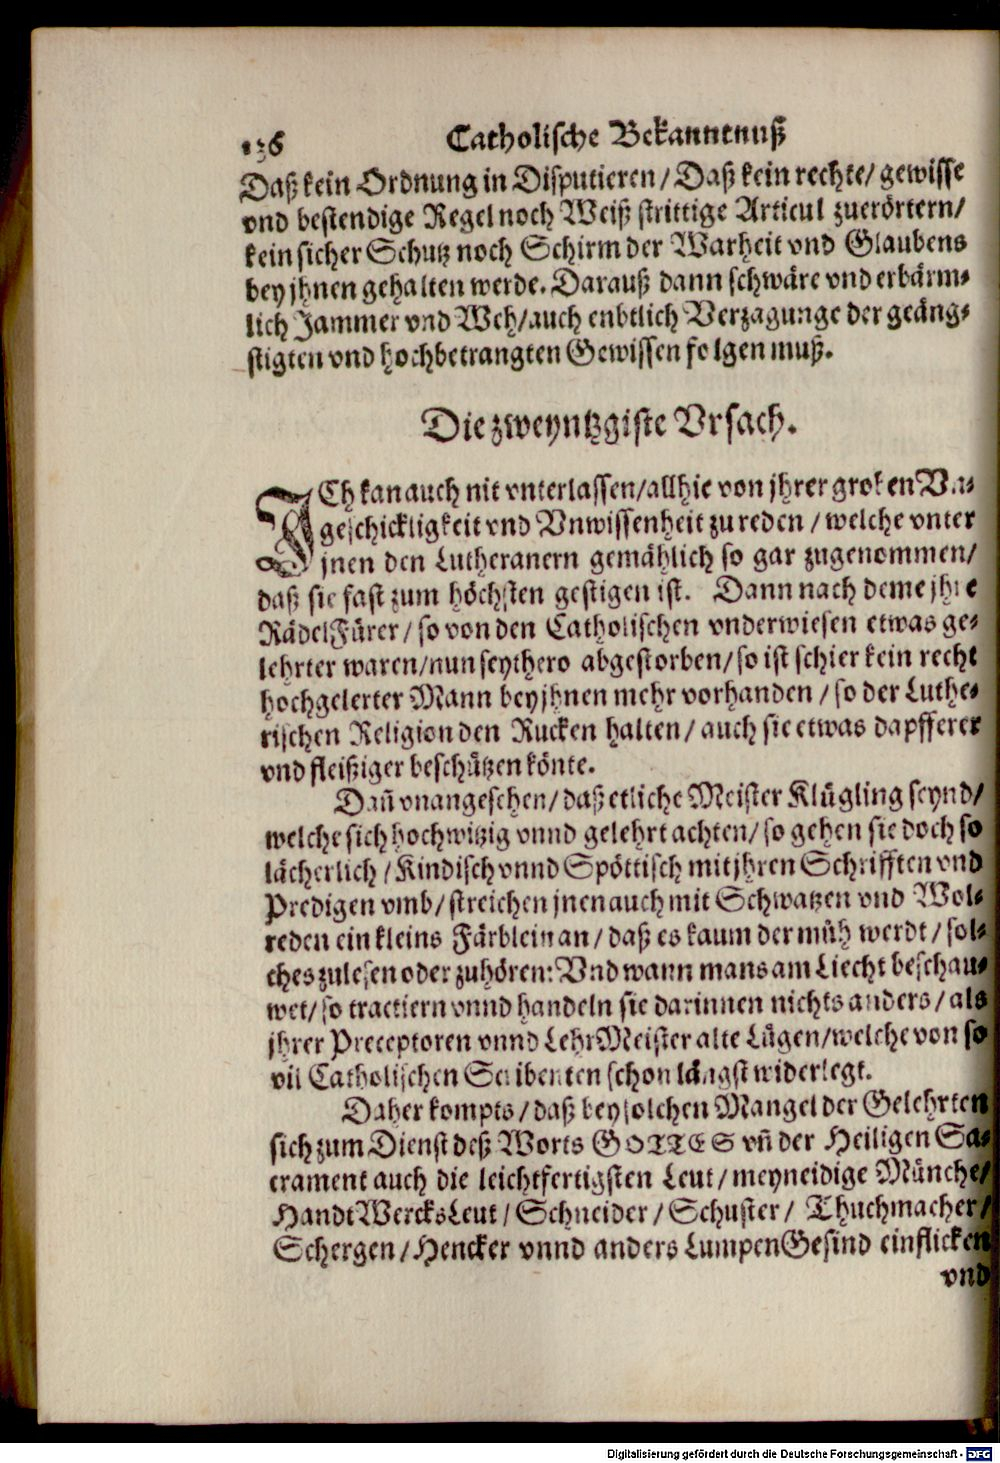 136 Catholische Bekanntnuß
Daß kein Ordnung in Disputieren / Daß kein rechte / gewisse
vnd bestendige Regel noch Weiß strittige Articul zuerörtern /
kein sicher Schutz noch Schirm der Warheit vnd Glaubens
bey jhnen gehalten werde. Darauß dann schwäre vnd erbärm-
lich Jammer vnd Weh / auch enbtlich Verzagunge der geäng-
stigten vnd hochbetrangten Gewissen folgen muß.
Die zweyntzgiste Vrsach.
JCh kan auch nit vnterlassen / allhie von jhrer groken Vn-
geschickligkeit vnd Vnwissenheit zu reden / welche vnter
jnen den Lutheranern gemählich so gar zugenommen /
daß sie fast zum höchsten gestigen ist. Dann nach deme jhre
RädelFürer / so von den Catholischen vnderwiesen etwas ge-
lehrter waren / nun seythero abgestorben / so ist schier kein recht
hochgelerter Mann bey jhnen mehr vorhanden / so der Luthe-
rischen Religion den Rucken halten / auch sie etwas dapfferer
vnd fleißiger beschützen könte.
Dañ vnangesehen / daß etliche Meister Klügling seynd /
welche sich hochwitzig vnnd gelehrt achten / so gehen sie doch so
lächerlich / Kindisch vnnd Spöttisch mit jhren Schrifften vnd
Predigen vmb / streichen jnen auch mit Schwatzen vnd Wol-
reden ein kleins Färblein an / daß es kaum der müh werdt / sol-
ches zulesen oder zuhören: Vnd wann mans am Liecht beschau-
wet / so tractiern vnnd handeln sie darinnen nichts anders / als
jhrer Preceptoren vnnd LehrMeister alte Lügen / welche von so
vil Catholischen Scribenten schon längst widerlegt.
Daher kompts / daß bey solchen Mangel der Gelehrten
sich zum Dienst deß Worts GOTTES vñ der Heiligen Sa-
crament auch die leichtfertigsten Leut / meyneidige Münche /
HandtWercksLeut / Schneider / Schuster / Thuchmacher /
Schergen / Hencker vnnd anders LumpenGesind einflicken
vnd
Digitalisierung gefördert durch die Deutsche Forschungsgemeinschaft - DFG